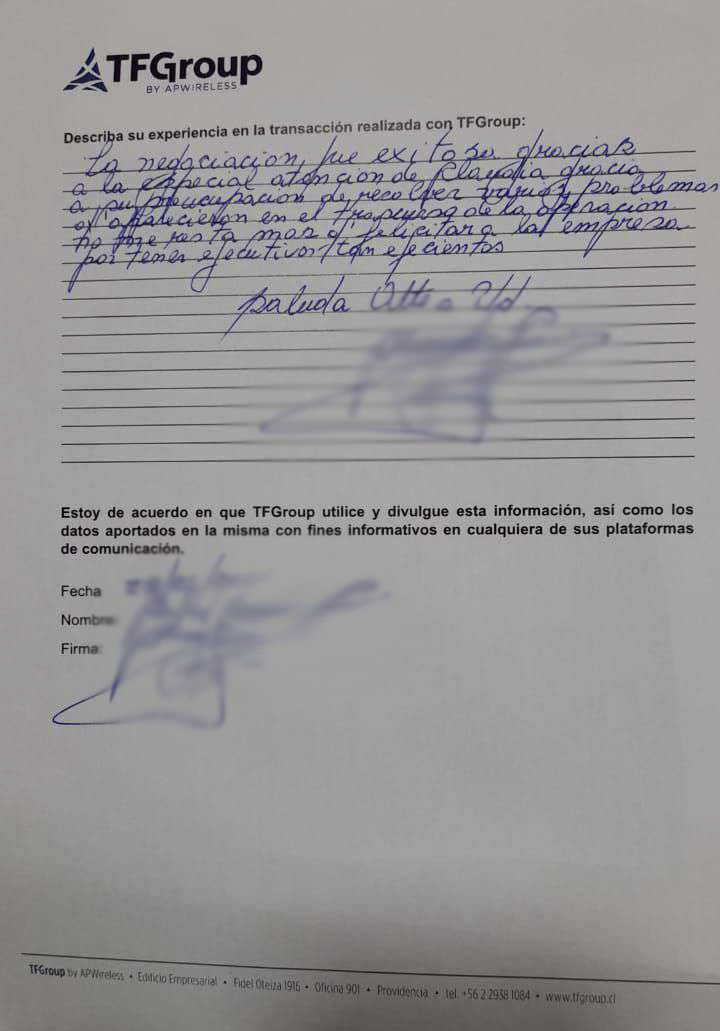 TFGroup
BY APWIRELESS
Describa su experiencia en la transacción realizada con TFGroup:
La negociacion, fue exitosa gracias
a la especial atencion de Claudia gracia
a su preocupacion de resolver varios problemas
q' aparecieron en el trascurso de la operación
no me resta mas q' felicitar a la empresa
por tener ejecutivos tan eficientes
saluda Atte a Ud.
Estoy de acuerdo en que TFGroup utilice y divulgue esta información, así como los
datos aportados en la misma con fines informativos en cualquiera de sus plataformas
de comunicación.
Fecha
Nombre:
Firma:
TFGroup by APWireless • Edificio Empresarial • Fidel Oteiza 1916 • Oficina 901 • Providencia • tel. +56 2 2938 1084 • www.tfgroup.cl